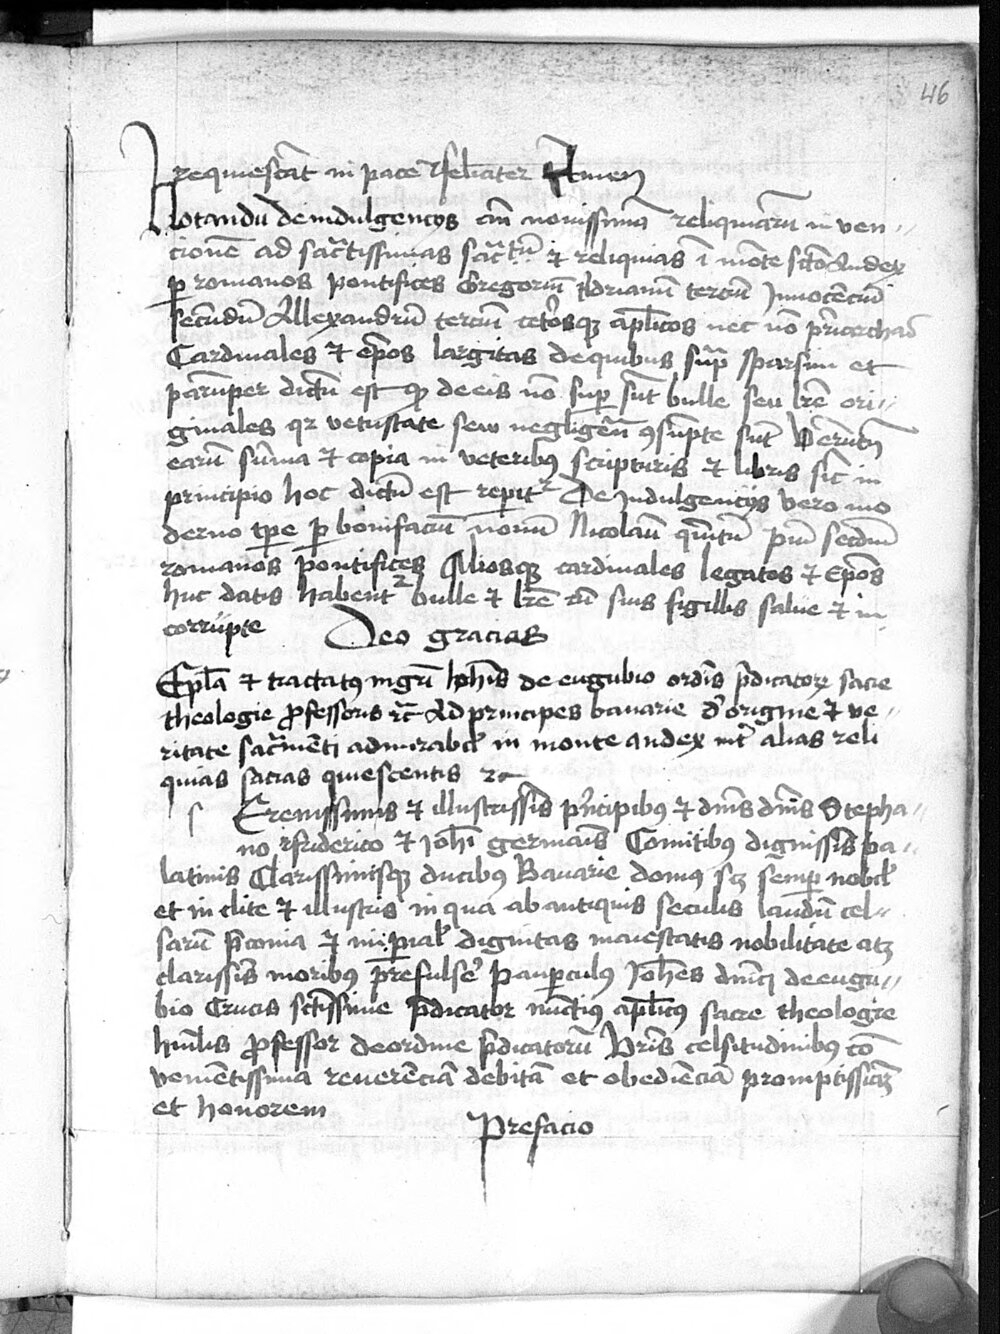 46
requiescāt in pace ⁊ feliciter Amen
Notandū de indulgencijs añ nouissimā reliquiarū in ven
cionē ad sacrātissimas sacrātū et reliquias ī mōte scō Andex
p romanos pontifices Gregoriū Adrianū terciū Innocēciū
secūdū Allexandrū terciū cetosq aplicos nec nō pri̇archas
Cardinales et ep̄os largitas de quibus sup̄ sparsim et
parūper dictū est q̄ de eis nō sup̄ sūt bulle seu lr̄e ori
ginales qr vetustate seu negligēcia 9sūpte sūt Verūtn̄
earū sūma et copia in veteribus scripturis et libris sic̄ in
principio hoc dictū est repit̄ De Indulgencijs vero mo
derno tpe p bonifaciū nonū Nicolaū quītū piū secdūm
romanos pontifices Aliosq cardinales legatos et Ep̄os
huc datis habent̄ bulle et lr̄e cū suis sigillis salue et in
corrupte Deo gracias
Epl̄a et tractatus mgr̄i Joh̄is de eugubio ordis p̄dicatorꝝ sacre
theologie ꝓfessoris rc̄ Ad principes bauarie d̄ origine et ve
ritate sacrīmēti admirabil̄ in monte andex int̄ alias reli
quias sacras quiescentis rc̄
Serenissimis et illustrissis principibus et dn̄is dn̄is Stepha
no ⁊ friderico et Joh̄i germanis Comitibus dignissis pa
latinis Clarissimisq ducibus Bauarie domus sꝫ semp̄ nobil̄
et inclite et illustris in qua ab antiquis seculis laudū cel
sarū p̄conia et imp̄ial̄ dignitas maiestatis nobilitate atꝫ
clarissis moribus p̄refulsē Pauperculus Joh̄es dn̄ici de eugu
bio Crucis sctissime p̄dicator nūctius aplicus sacre theologie
hūilis ꝓfessor de ordine p̄dicatorū Vr̄is celsitudinibus cō
venientissima reuerēciā debitā et obediēciā promptissimā
et honorem
Prefacio